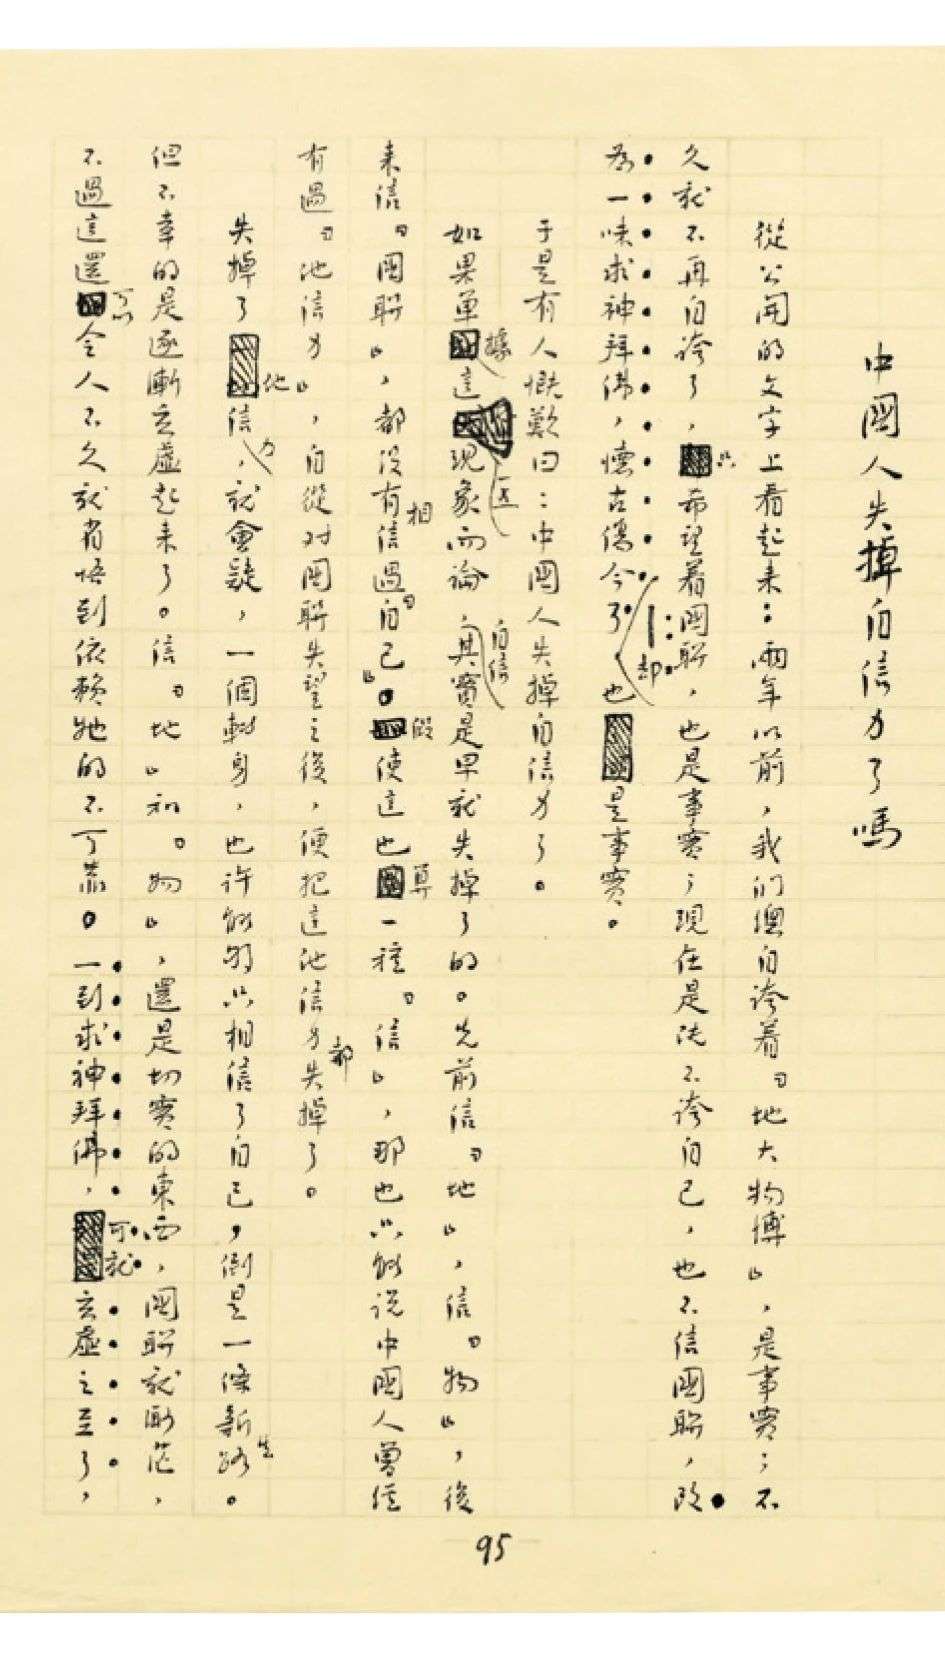 中國人失掉自信力了嗎
從公開的文字上看起来：兩年以前，我们總自誇着「地大物博」，是事實；不
久就不再自誇了，只希望着國联，也是事實；現在是既不誇自己，也不信國联，改
為一味求神拜佛，懷古傷今了，却也是事實。
于是有人慨歎曰：中國人失掉自信力了。
如果单據這一点現象而論，自信其實是早就失掉了的。先前信「地」，信「物」，後
来信「國联」，都没有相信過「自己」。假使這也算一種「信」，那也只能说中國人曾经
有過「他信力」，自從对國联失望之後，便把這他信力都失掉了。
失掉了他信力，就會疑，一個轉身，也许能夠只相信了自己，倒是一條新生路。
但不幸的是逐漸玄虛起来了。信「地」和「物」，還是切實的東西，國联就渺茫，
不過這還可以令人不久就省悟到依赖牠的不可靠。一到求神拜佛，可就玄虛之至了，
95